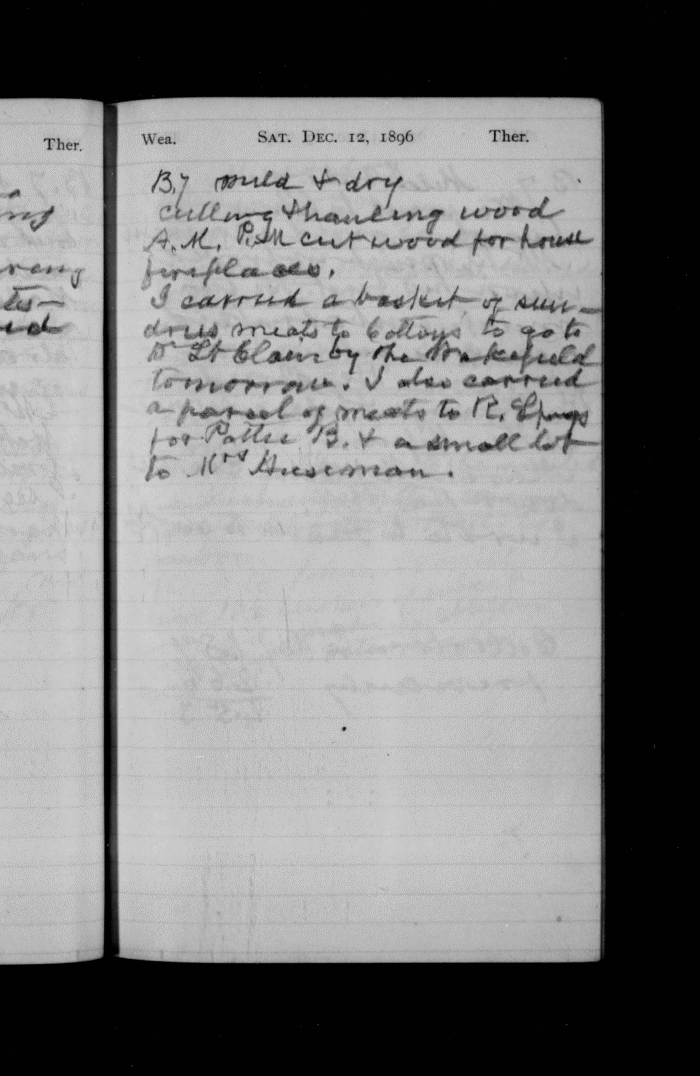 Ther.
Wea. SAT. DEC. 12, 1896 Ther.
B.7 mild & dry
cutting & hauling wood
A.M. P.M cut wood for house
fireplaces.
I carried a basket of sun-
dries meats to Coltons to go to
Dr St Clair by the Wakefield
tomorrow. I also carried
a parcel of meats to R.
for B. & a small lot
to Mrs Huseman.